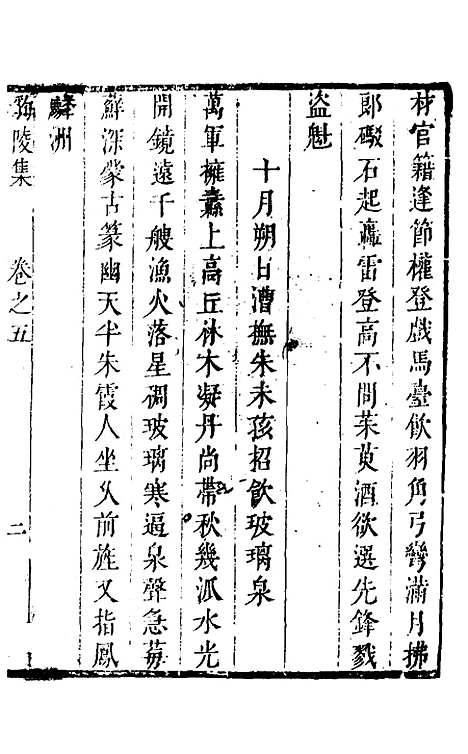 材官籍逢節權登戲馬臺飲羽角弓彎滿月拂
郎礟石起轟雷登高不問茱萸酒欲選先鋒戮
盜魁
十月朔日漕撫朱未孩招飲玻璃泉
萬軍擁纛上高丘林木凝丹尚帶秋幾派水光
開鏡遠千艘漁火落星稠玻璃寒逼泉聲急莓
蘚深蒙古篆幽天半朱霞人坐久前旌又指鳳
麟洲
海陵集
卷之五
二